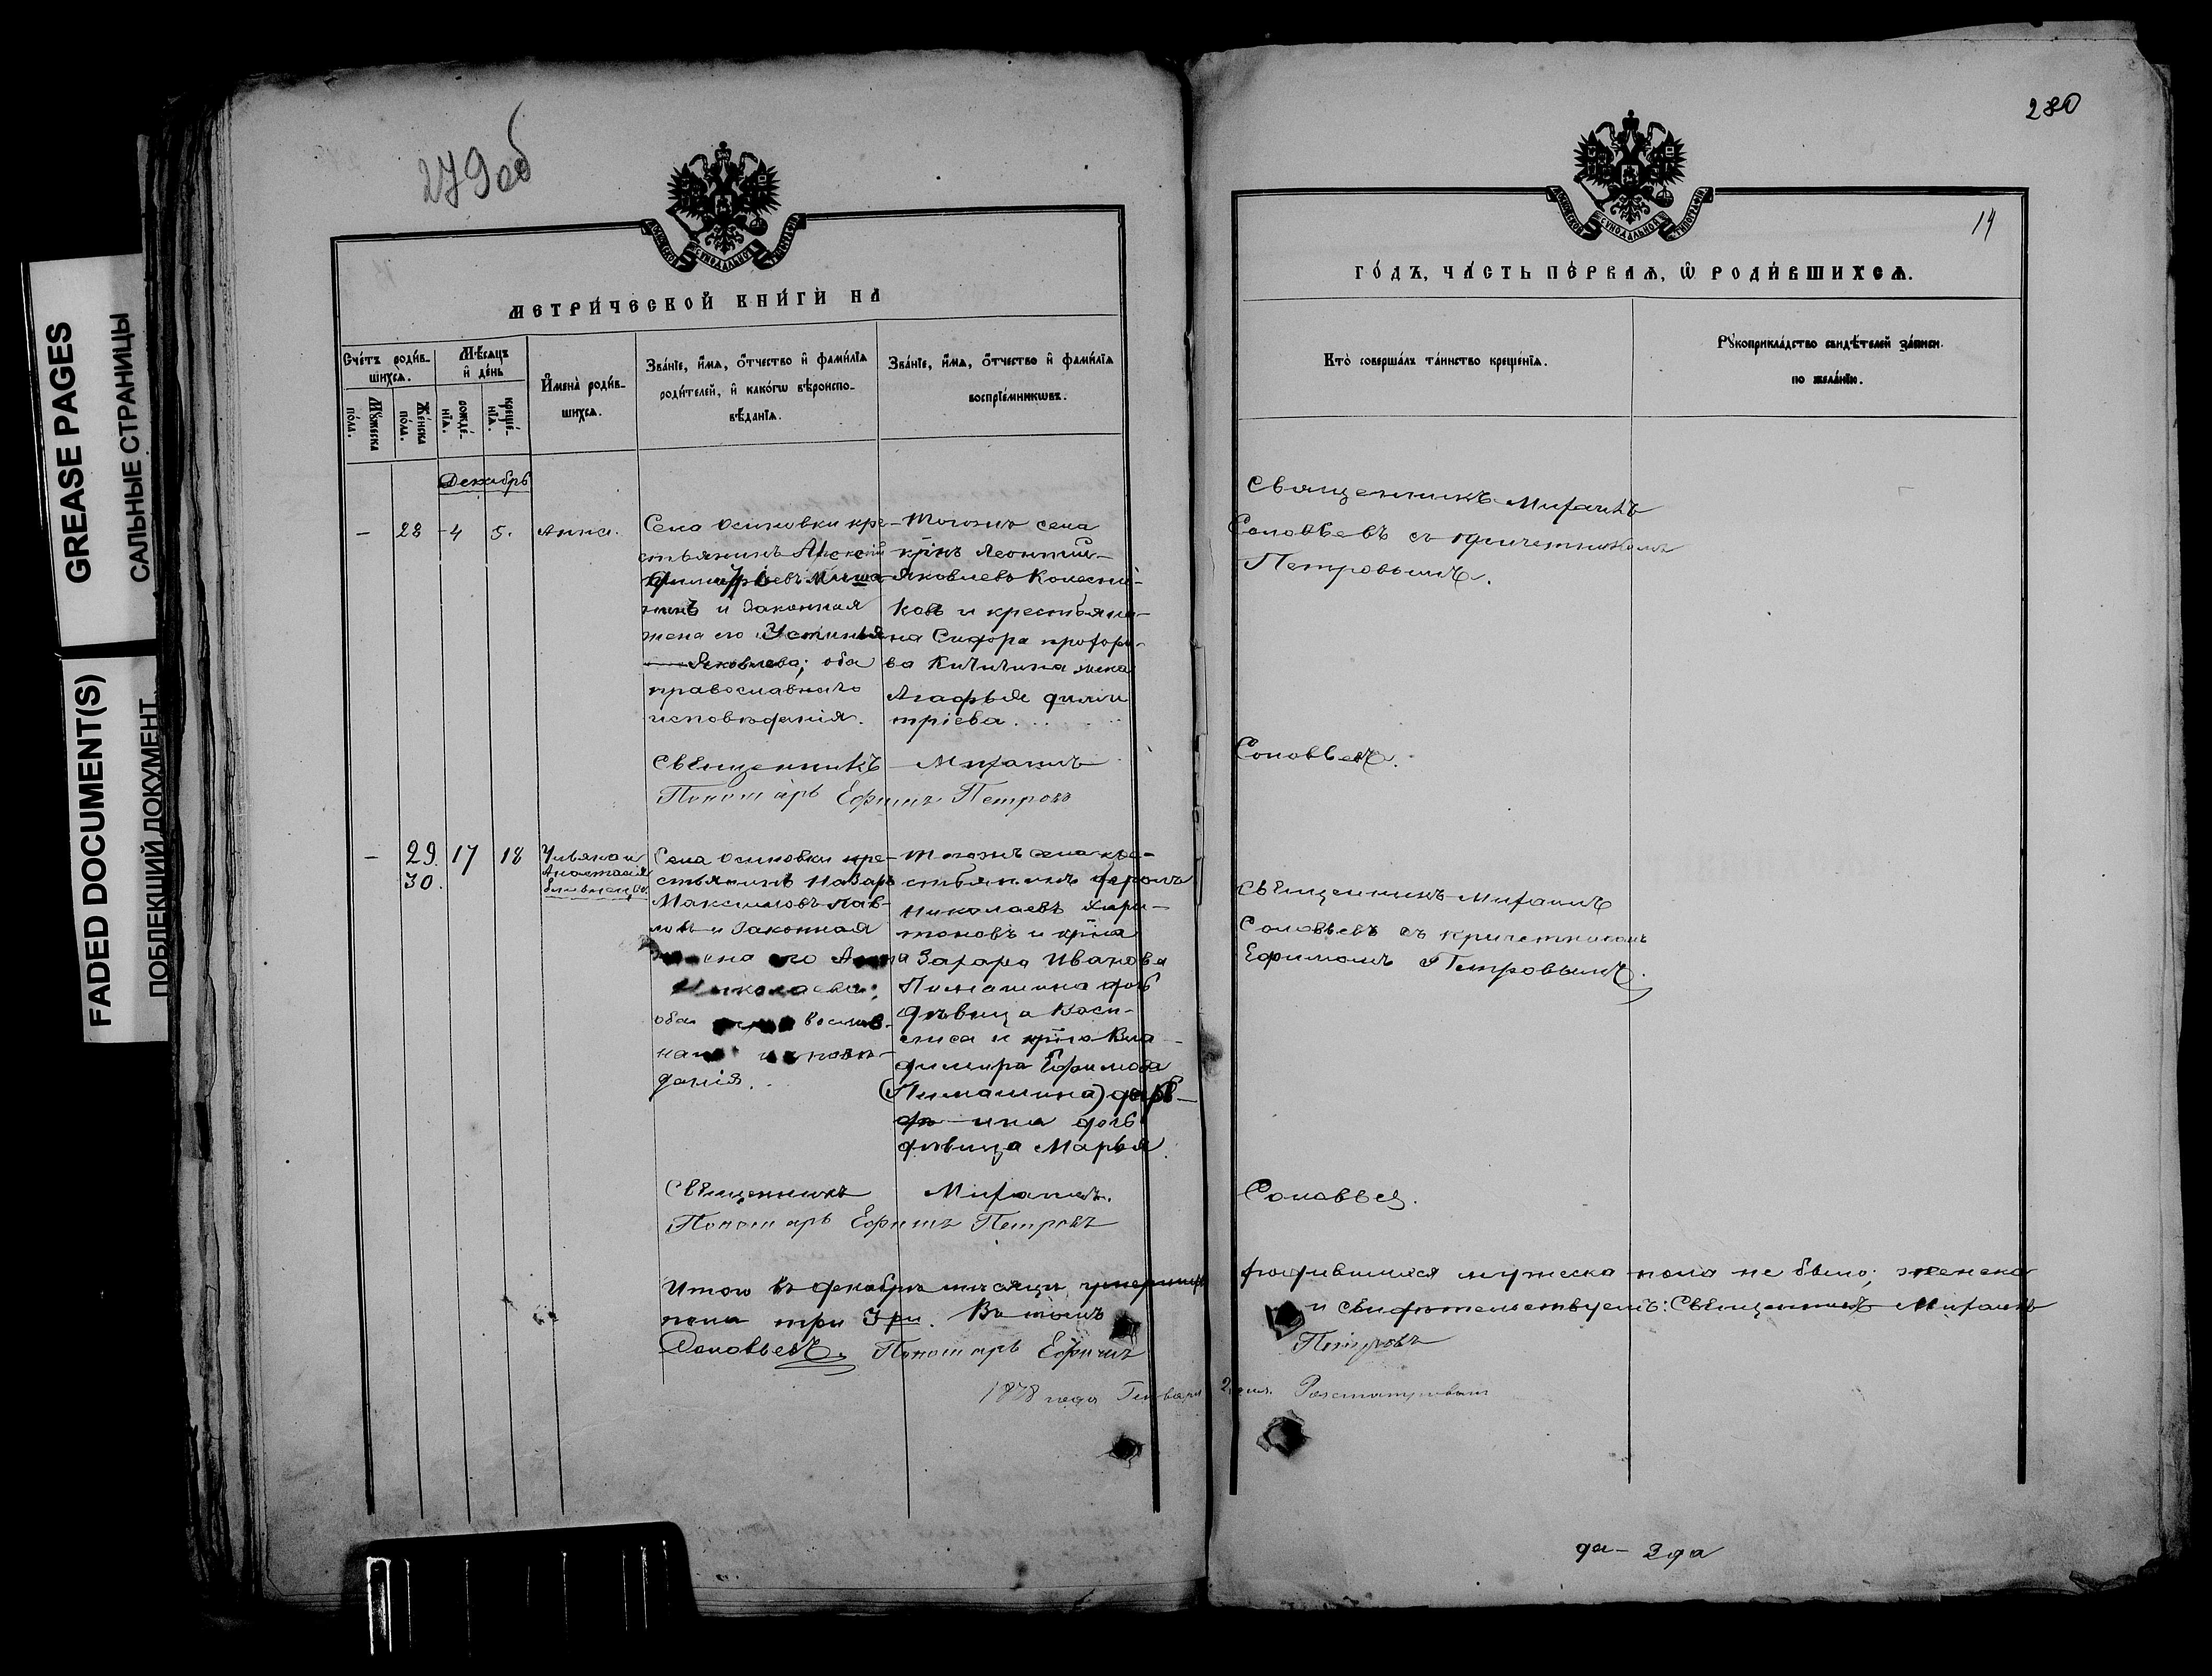 GREASE PAGES
САЛЬНЫЕ СТРАНИЦЫ
FADED DOCUMENT(S)
ПОБЛЕКШИЙ ДОКУМЕНТ
279 об
МЕТРИ́ЧЕСКОЙ КНИ́ГИ НА
Сче́тъ роди́в-
шихсѧ.
Мѣ́сѧцъ
и҆ де́нь
Мꙋ́жеска
по́ла.
Же́нска
по́ла.
рожде́-
нїѧ.
креще́-
нїѧ.
И҆мена̀ роди́в-
шихсѧ.
Зва́нїе, и҆́мѧ, ѻ҆́тчество и҆ фами́лїѧ
роди́телей, и҆ како́гѡ вѣроиспо-
вѣ́данїѧ.
Зва́нїе, и҆́мѧ, ѻ҆́тчество и҆ фами́лїѧ
воспрїе́мникѡвъ.
Декабрь
- 28 4 5. Анна.
Села Осиновки кре-
стьянинъ Алексей
и законная
жена его Устинья
Яковлева; оба
православнаго
исповѣданія.
Тогожъ села
крнъ Леонтій
Яковлевъ Колесни-
ковъ и крестьяни-
на Сидора Прохоро-
ва Кичигина жена
Агафья Дими
тріева.
Священникъ Михаилъ
Пономарь Ефимъ Петровъ
- 29. 17 18 Ульяна и
30. Анастасія
близнецы.
Села Осиновки кре-
стьянинъ Назаръ
Максимовъ Пав-
ловъ и законная
жена его Анна
Николаева;
оба
даніѧ.
Тогожъ села кре-
стьянинъ
Николаевъ Хари-
тоновъ и крна
Захара Иванова
дочь
дѣвица Васи-
лиса и крна Вла-
димира Ефимова
дочь
дѣвица Марья
Священникъ Михаилъ.
Пономарь Ефимъ Петровъ
Итого въ декабрѣ мѣсяцѣ
пола три 3ри. Въ томъ
Соловьевъ. Пономарь Ефимъ
1878 года Генваря
280
14
ГО́ДЪ, ЧА́СТЬ ПЕ́РВАѦ, Ѡ҆ РОДИ́ВШИХСѦ.
Кто̀ соверша́лъ та́инство креще́нїѧ.
Рꙋкоприкла́дство свидѣ́телей за́писи.
по жела́нїю.
Священникъ Михаилъ
Соловьевъ съ причетникомъ
Петровымъ.
Соловьевъ.
Священникъ Михаилъ
Соловьевъ съ причетникомъ
Ефимомъ Петровымъ.
Соловьевъ.
родившихся мужеска пола не было; женска
и свидѣтельствуемъ: Священникъ Михаилъ
Петровъ
2 дня.